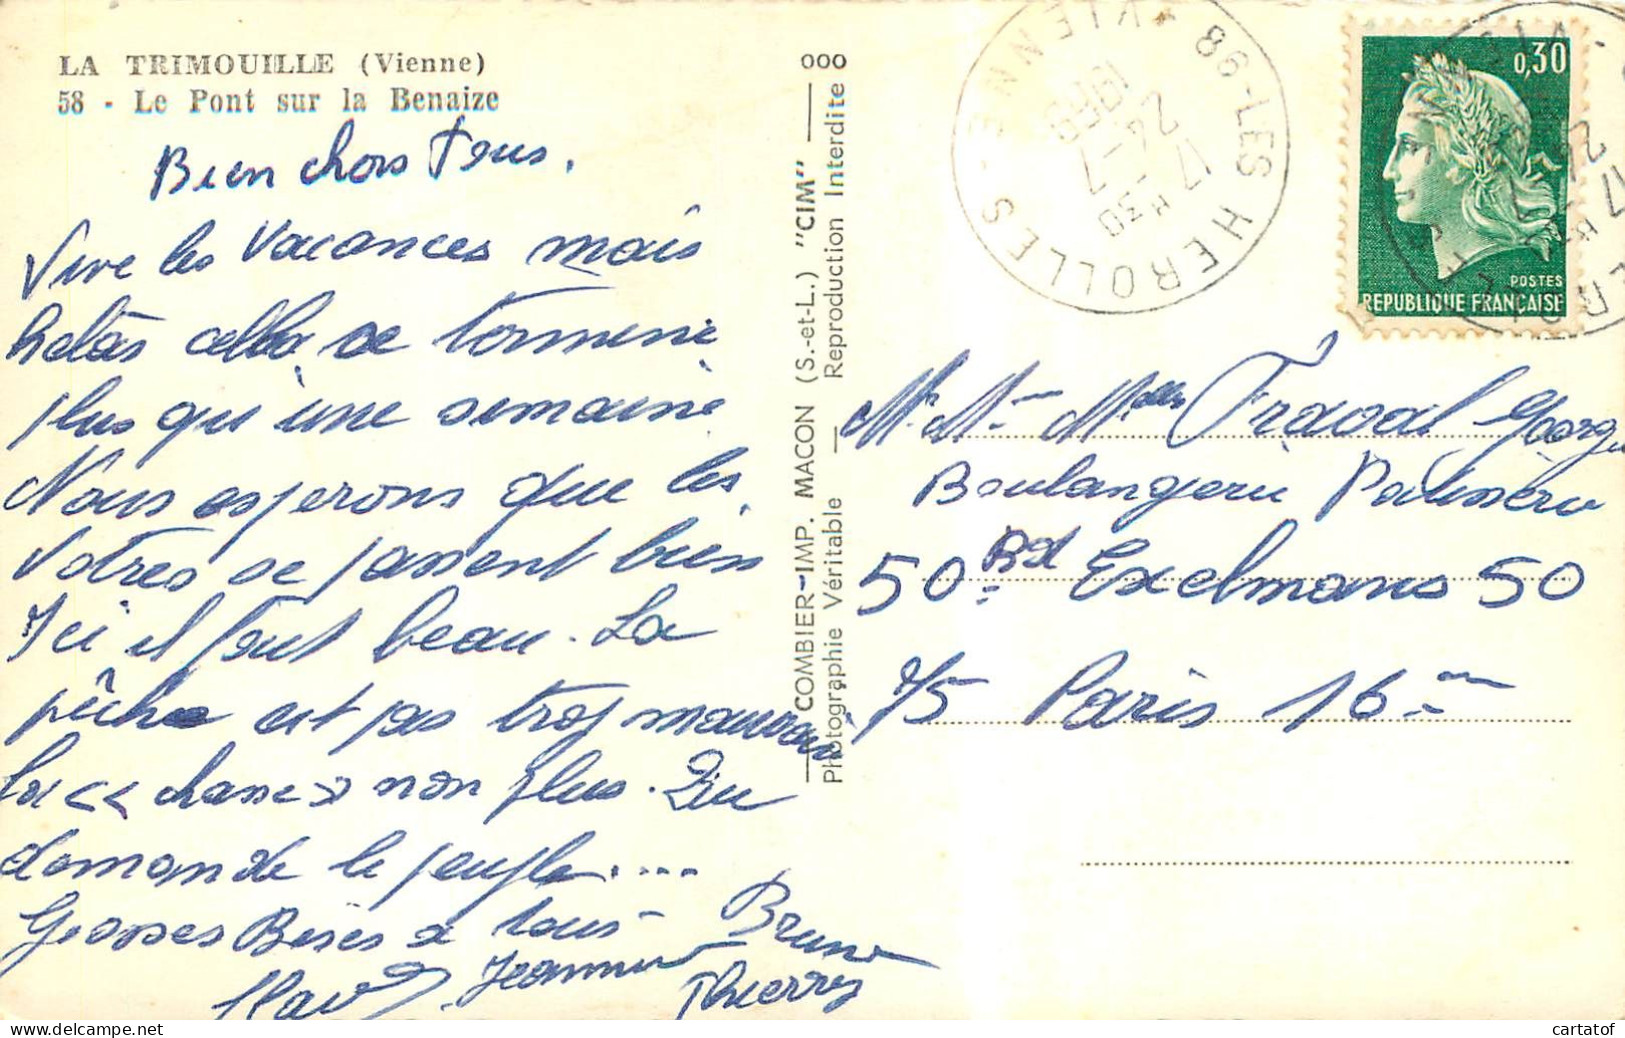 LA TRIMOUILLE (Vienne)
58 - Le Pont sur la Benaize
Bien chers tous.
Vive les vacances mais
helas cella se termine
plus qu'une semaine
Nous esperons que les
votres se passent bien
Ici il fait beau. La
pêche est pas trop mauvaise
la << chasse >> non plus. Que
demande le peuple....
Grosses Bises a tous
Bruno
Jeannine
Thierry
000
COMBIER-IMP. MACON (S.-et-L.) "CIM"
Photographie Véritable — Reproduction Interdite
86-LES HEROLLES S
VIENNE
17 H 30
24-7
1969
0,30
POSTES
REPUBLIQUE FRANÇAISE
Mr. Me Mlles Fraval Georg
Boulangerie Patisserie
50 Bd Exelmans 50
75 Paris 16
cartatof